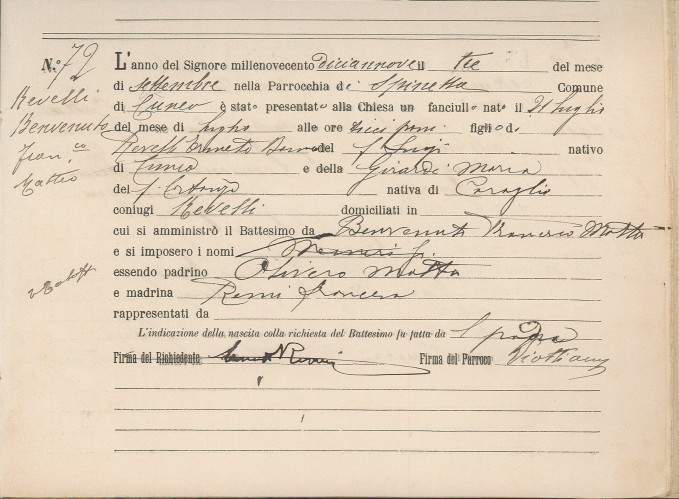 N.° 72
Revelli
Benvenuto
Fran.co
Matteo
L'anno del Signore millenovecento diciannove il tre del mese
di settembre nella Parrocchia di Spinetta Comune
di Cuneo è stato presentato alla Chiesa un fanciullo nato il 21 luglio
del mese di luglio alle ore dieci figlio di
Revelli Ernesto del f. Luigi nativo
di Cuneo e della Girardi Maria
del f. nativa di Caraglio
coniugi Revelli domiciliati in
cui si amministrò il Battesimo da Benvenuto Francesco Matteo
e si imposero i nomi
essendo padrino Olivero Matteo
e madrina
rappresentati da
L'indicazione della nascita colla richiesta del Battesimo fu fatta da
Firma del Richiedente Firma del Parroco